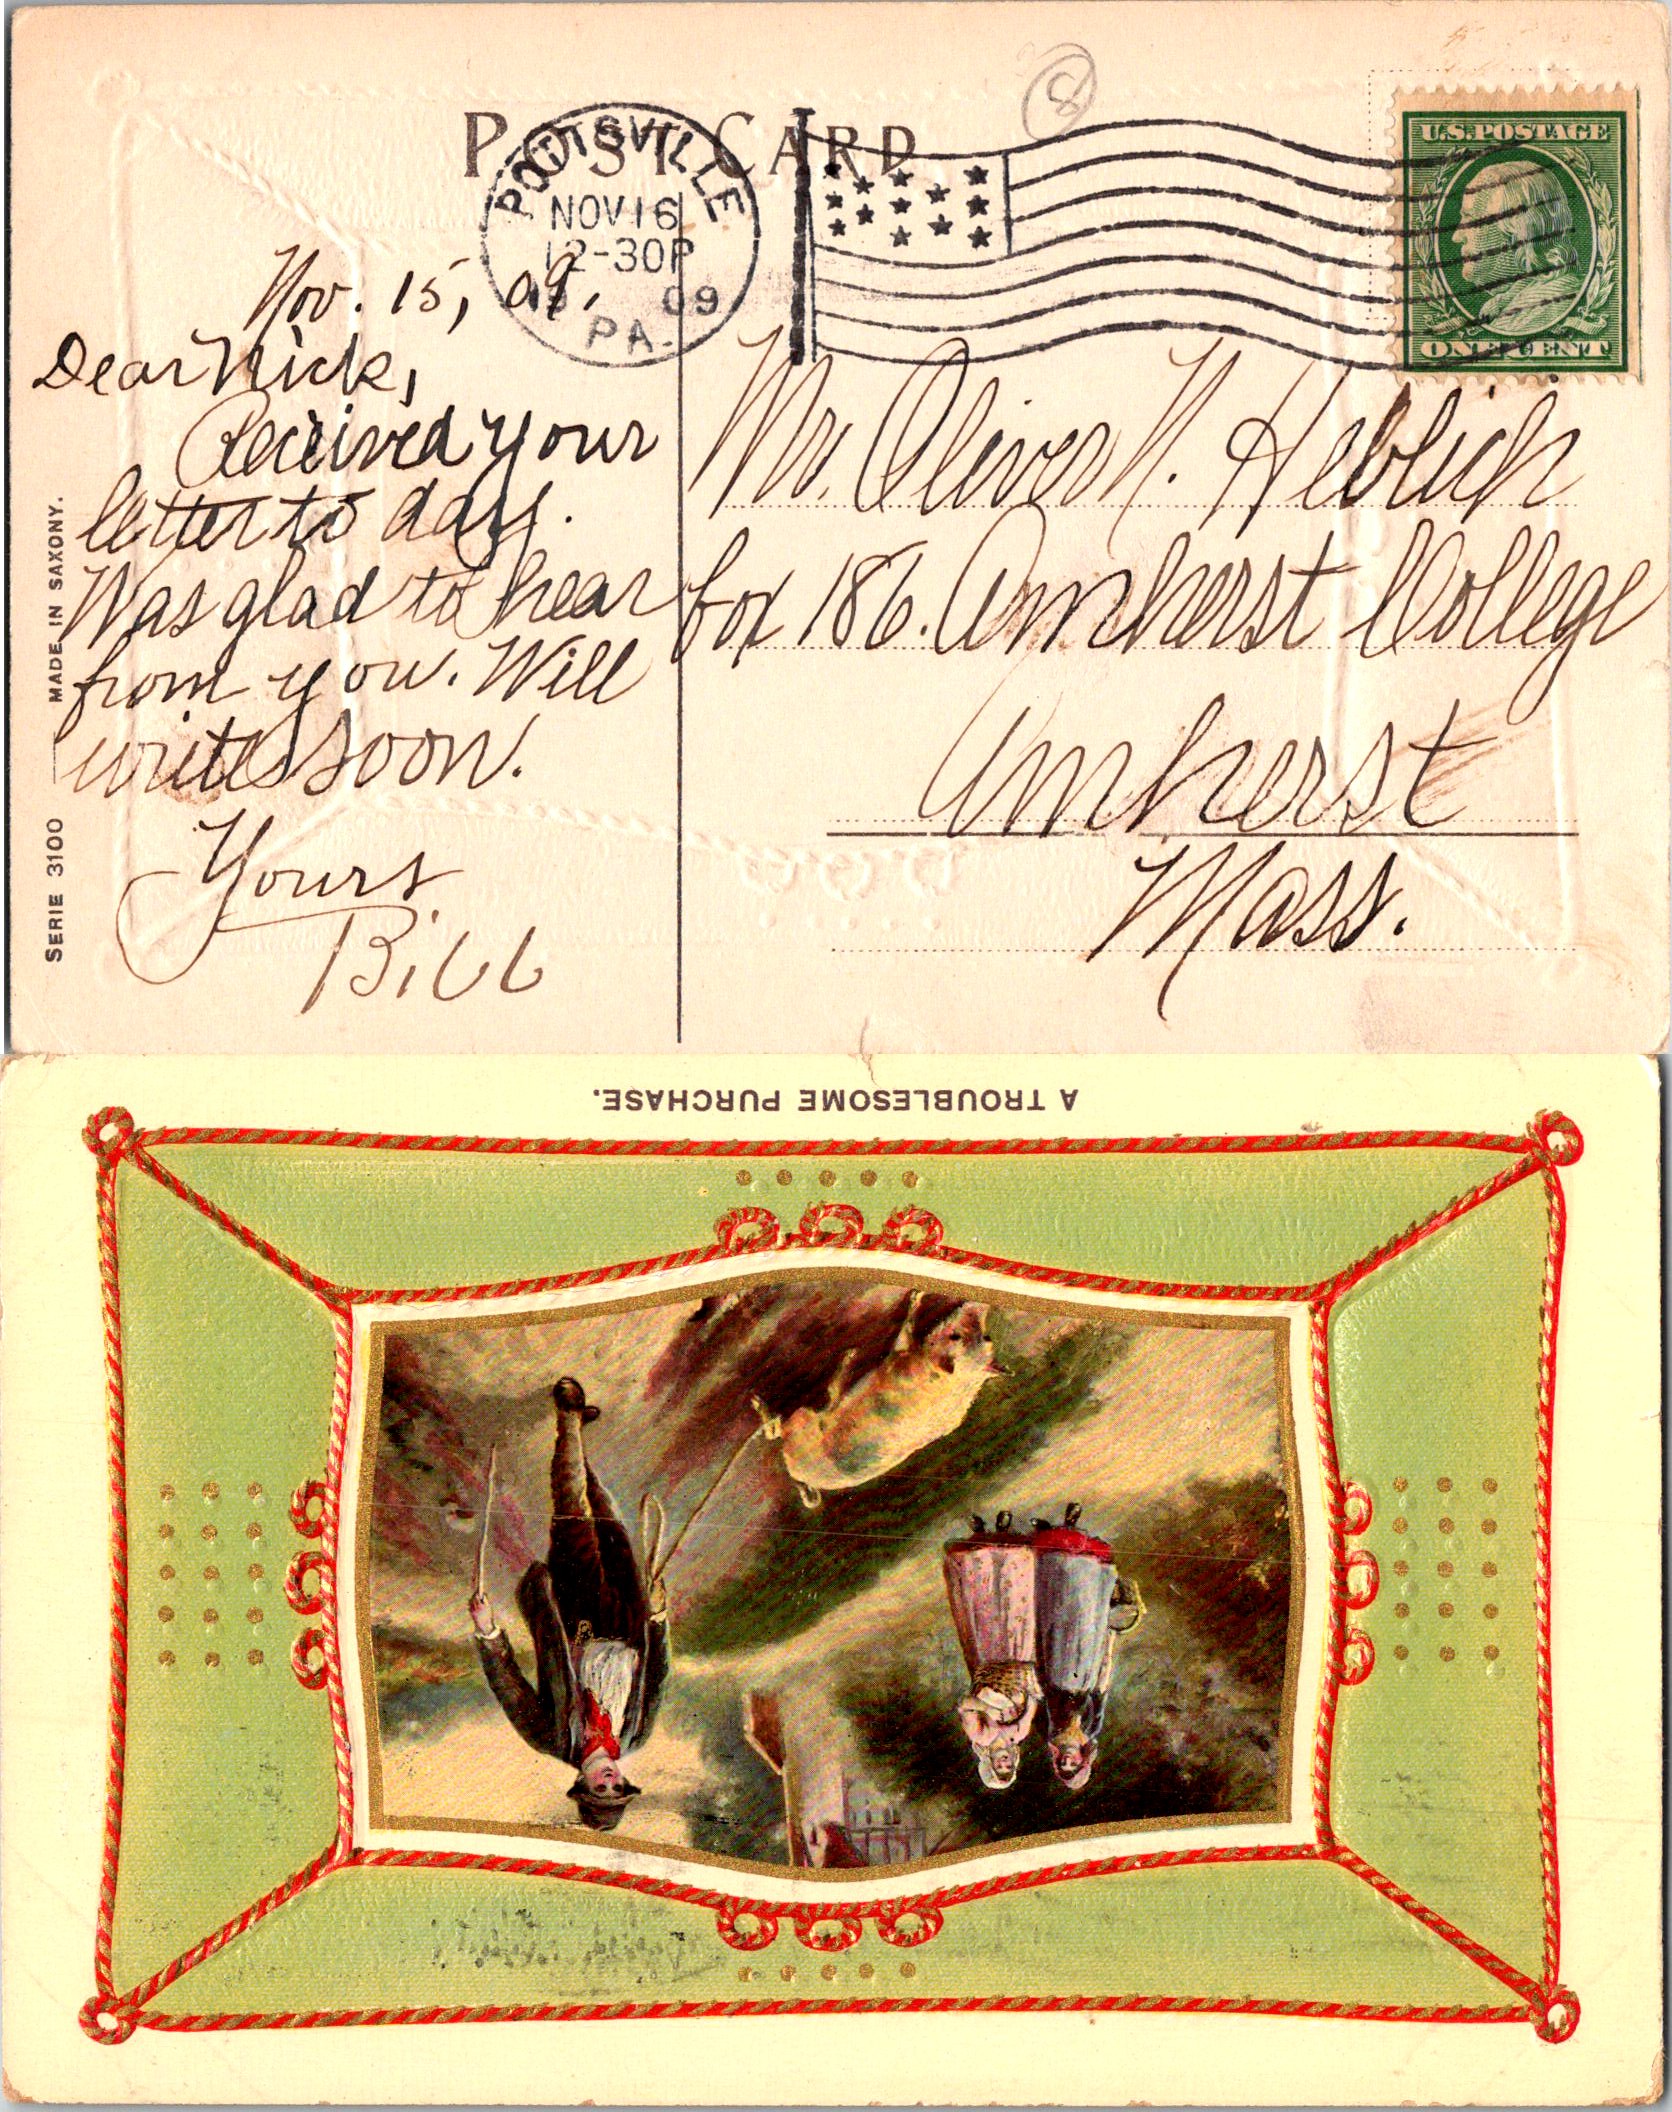 POST CARD
8
POTTSVILLE
NOV 16
12-30P
09
PA.
U.S.POSTAGE
ONE CENT
Nov. 15, 09.
Dear Nick,
Received your
letter to day.
Was glad to hear
from you. Will
write soon.
Yours
Bill
Mr. Oliver N. Heblich
box 186. Amherst College
Amherst
Mass.
SERIE 3100
MADE IN SAXONY.
A TROUBLESOME PURCHASE.